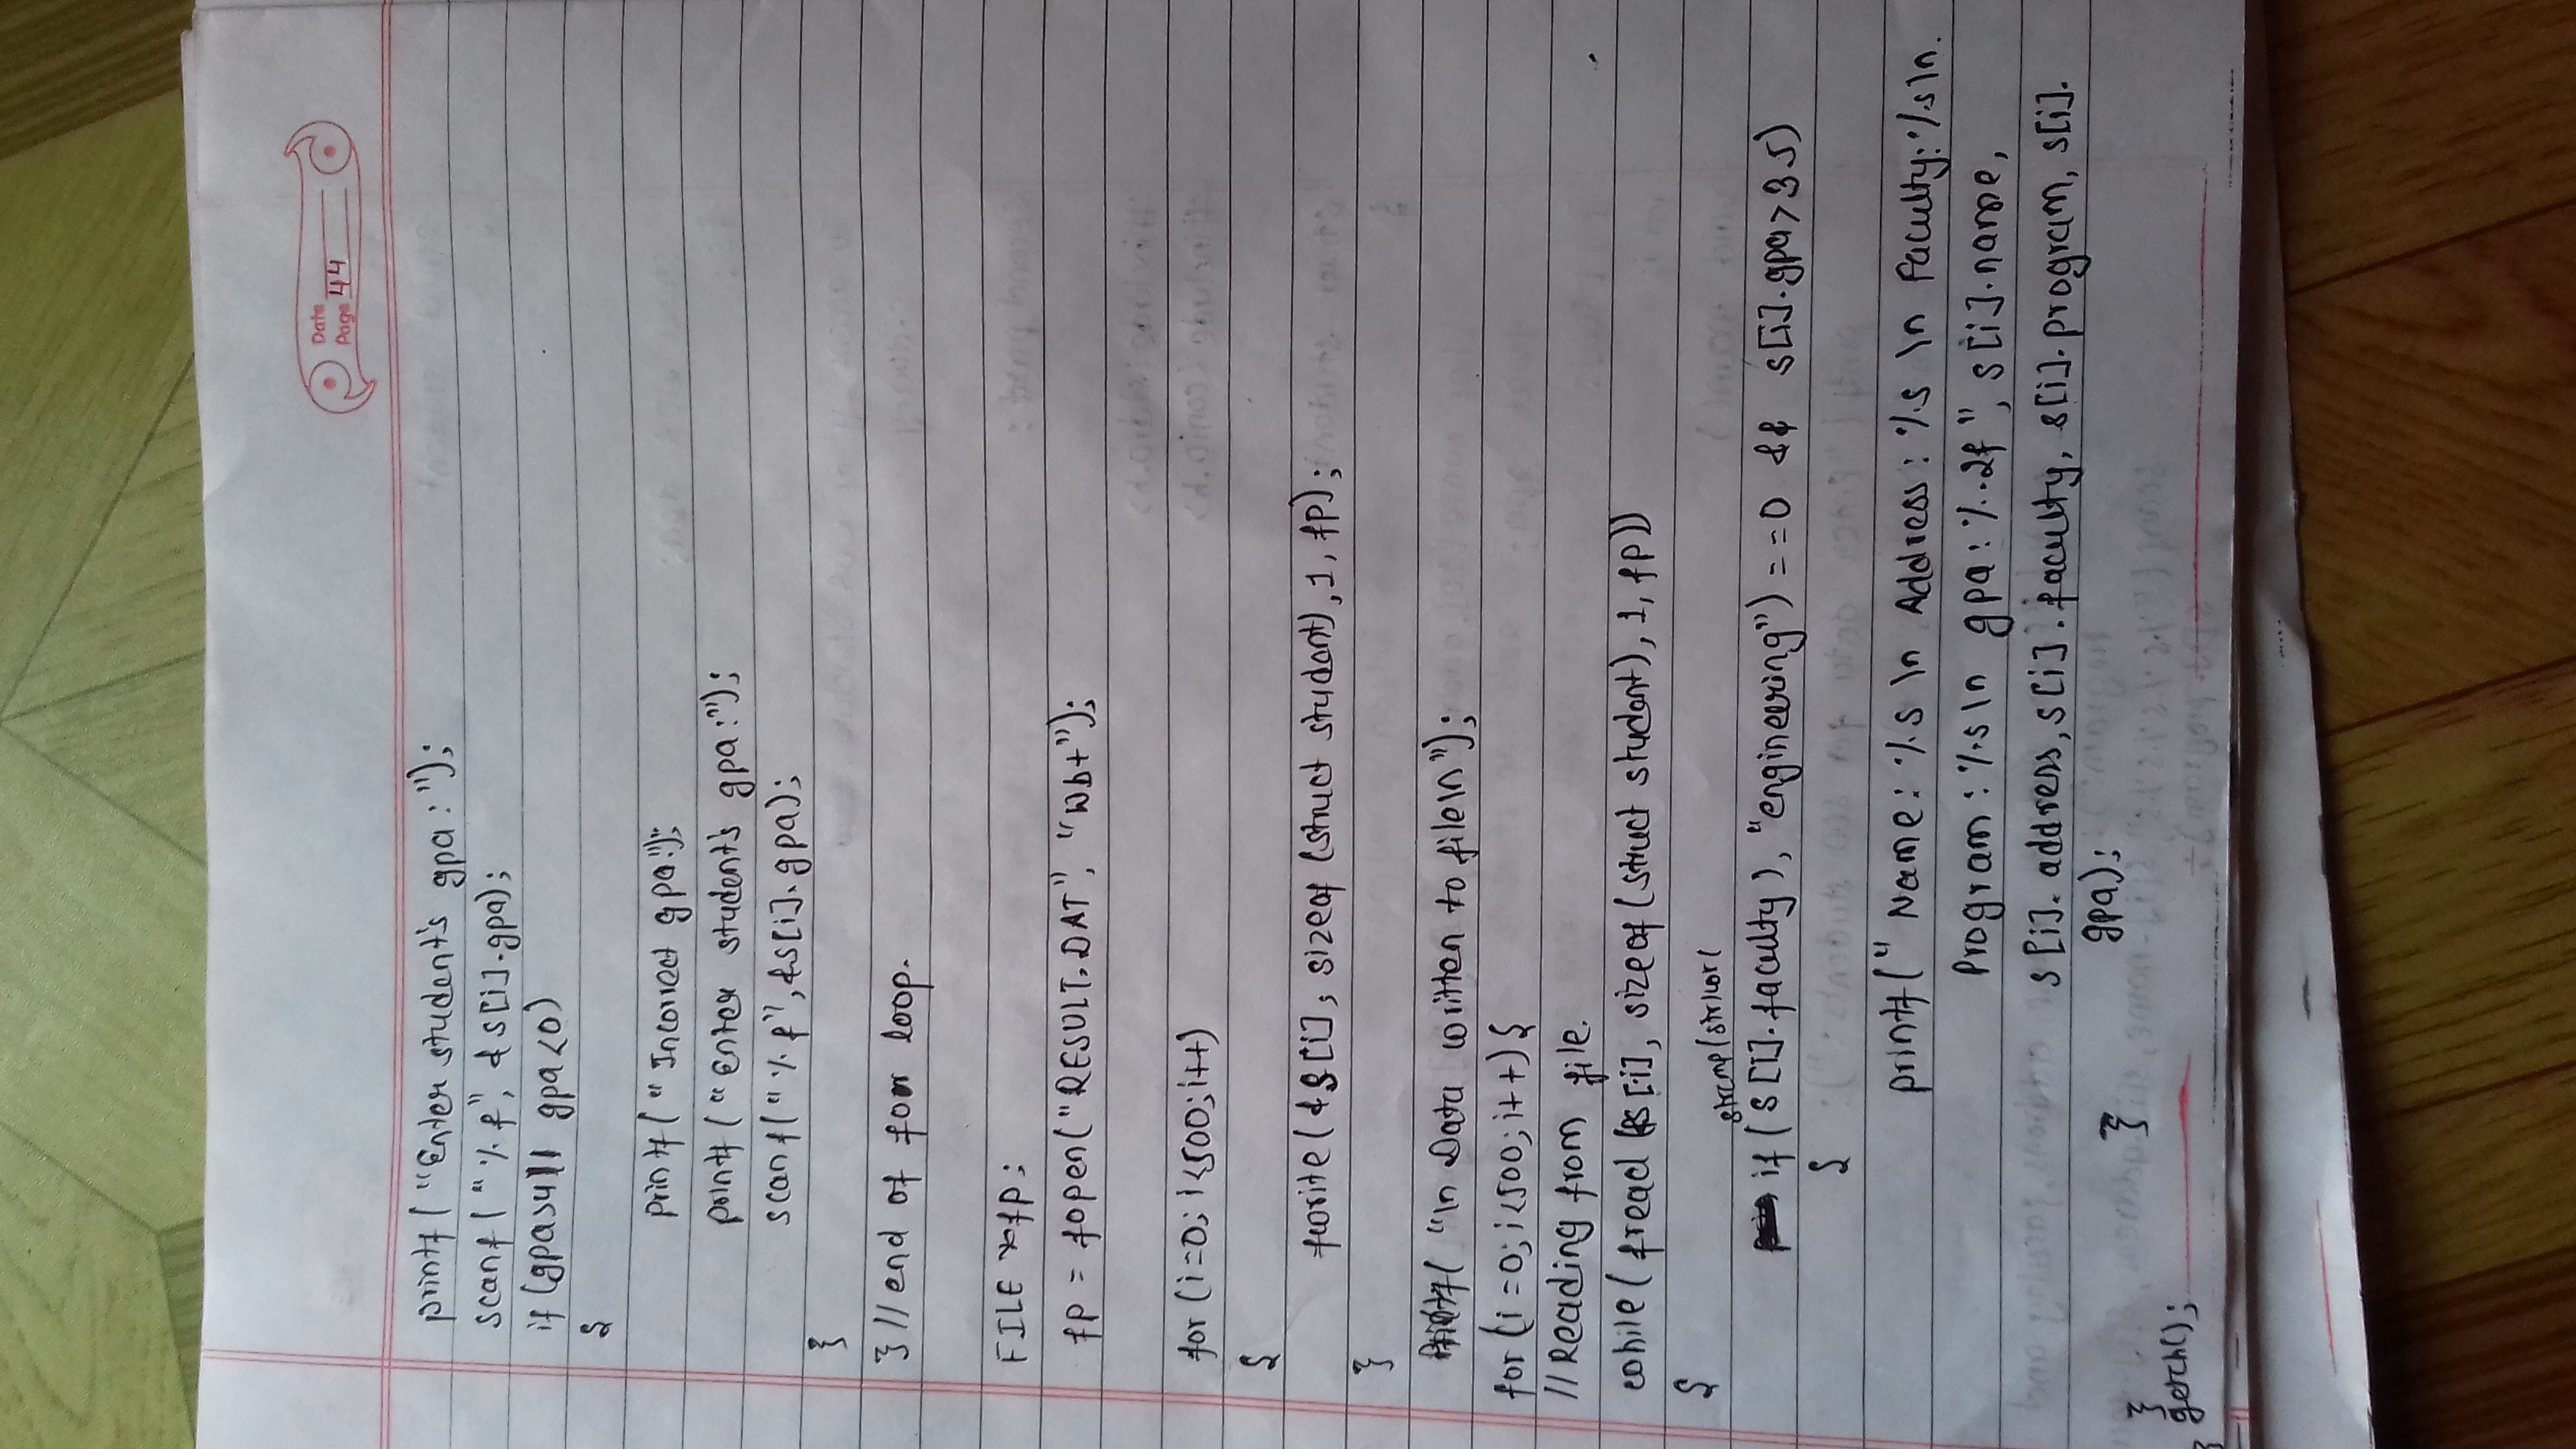 Date
Page 44
printf("Enter student's gpa:");
scanf("%f", &s[i].gpa);
if(gpa>4|| gpa<0)
{
printf("Incorrect gpa:");
printf("Enter student's gpa:");
scanf("%f", &s[i].gpa);
}
} // end of for loop.
FILE *fp;
fp = fopen("RESULT.DAT", "wb+");
for (i=0; i<500; i++)
{
fwrite(&s[i], sizeof(struct student), 1, fp);
}
printf("\n Data written to file\n");
for (i=0; i<500; i++) {
// Reading from file.
while(fread(&s[i], sizeof(struct student), 1, fp))
{
strcmp(strlwr(
if(s[i].faculty), "engineering") ==0 && s[i].gpa>3.5)
{
printf(" Name: %s \n Address: %s \n Faculty: %s\n.
Program: %s\n gpa: %.2f", s[i].name,
s[i].address, s[i].faculty, s[i].program, s[i].
gpa);
}
}
getch();
}